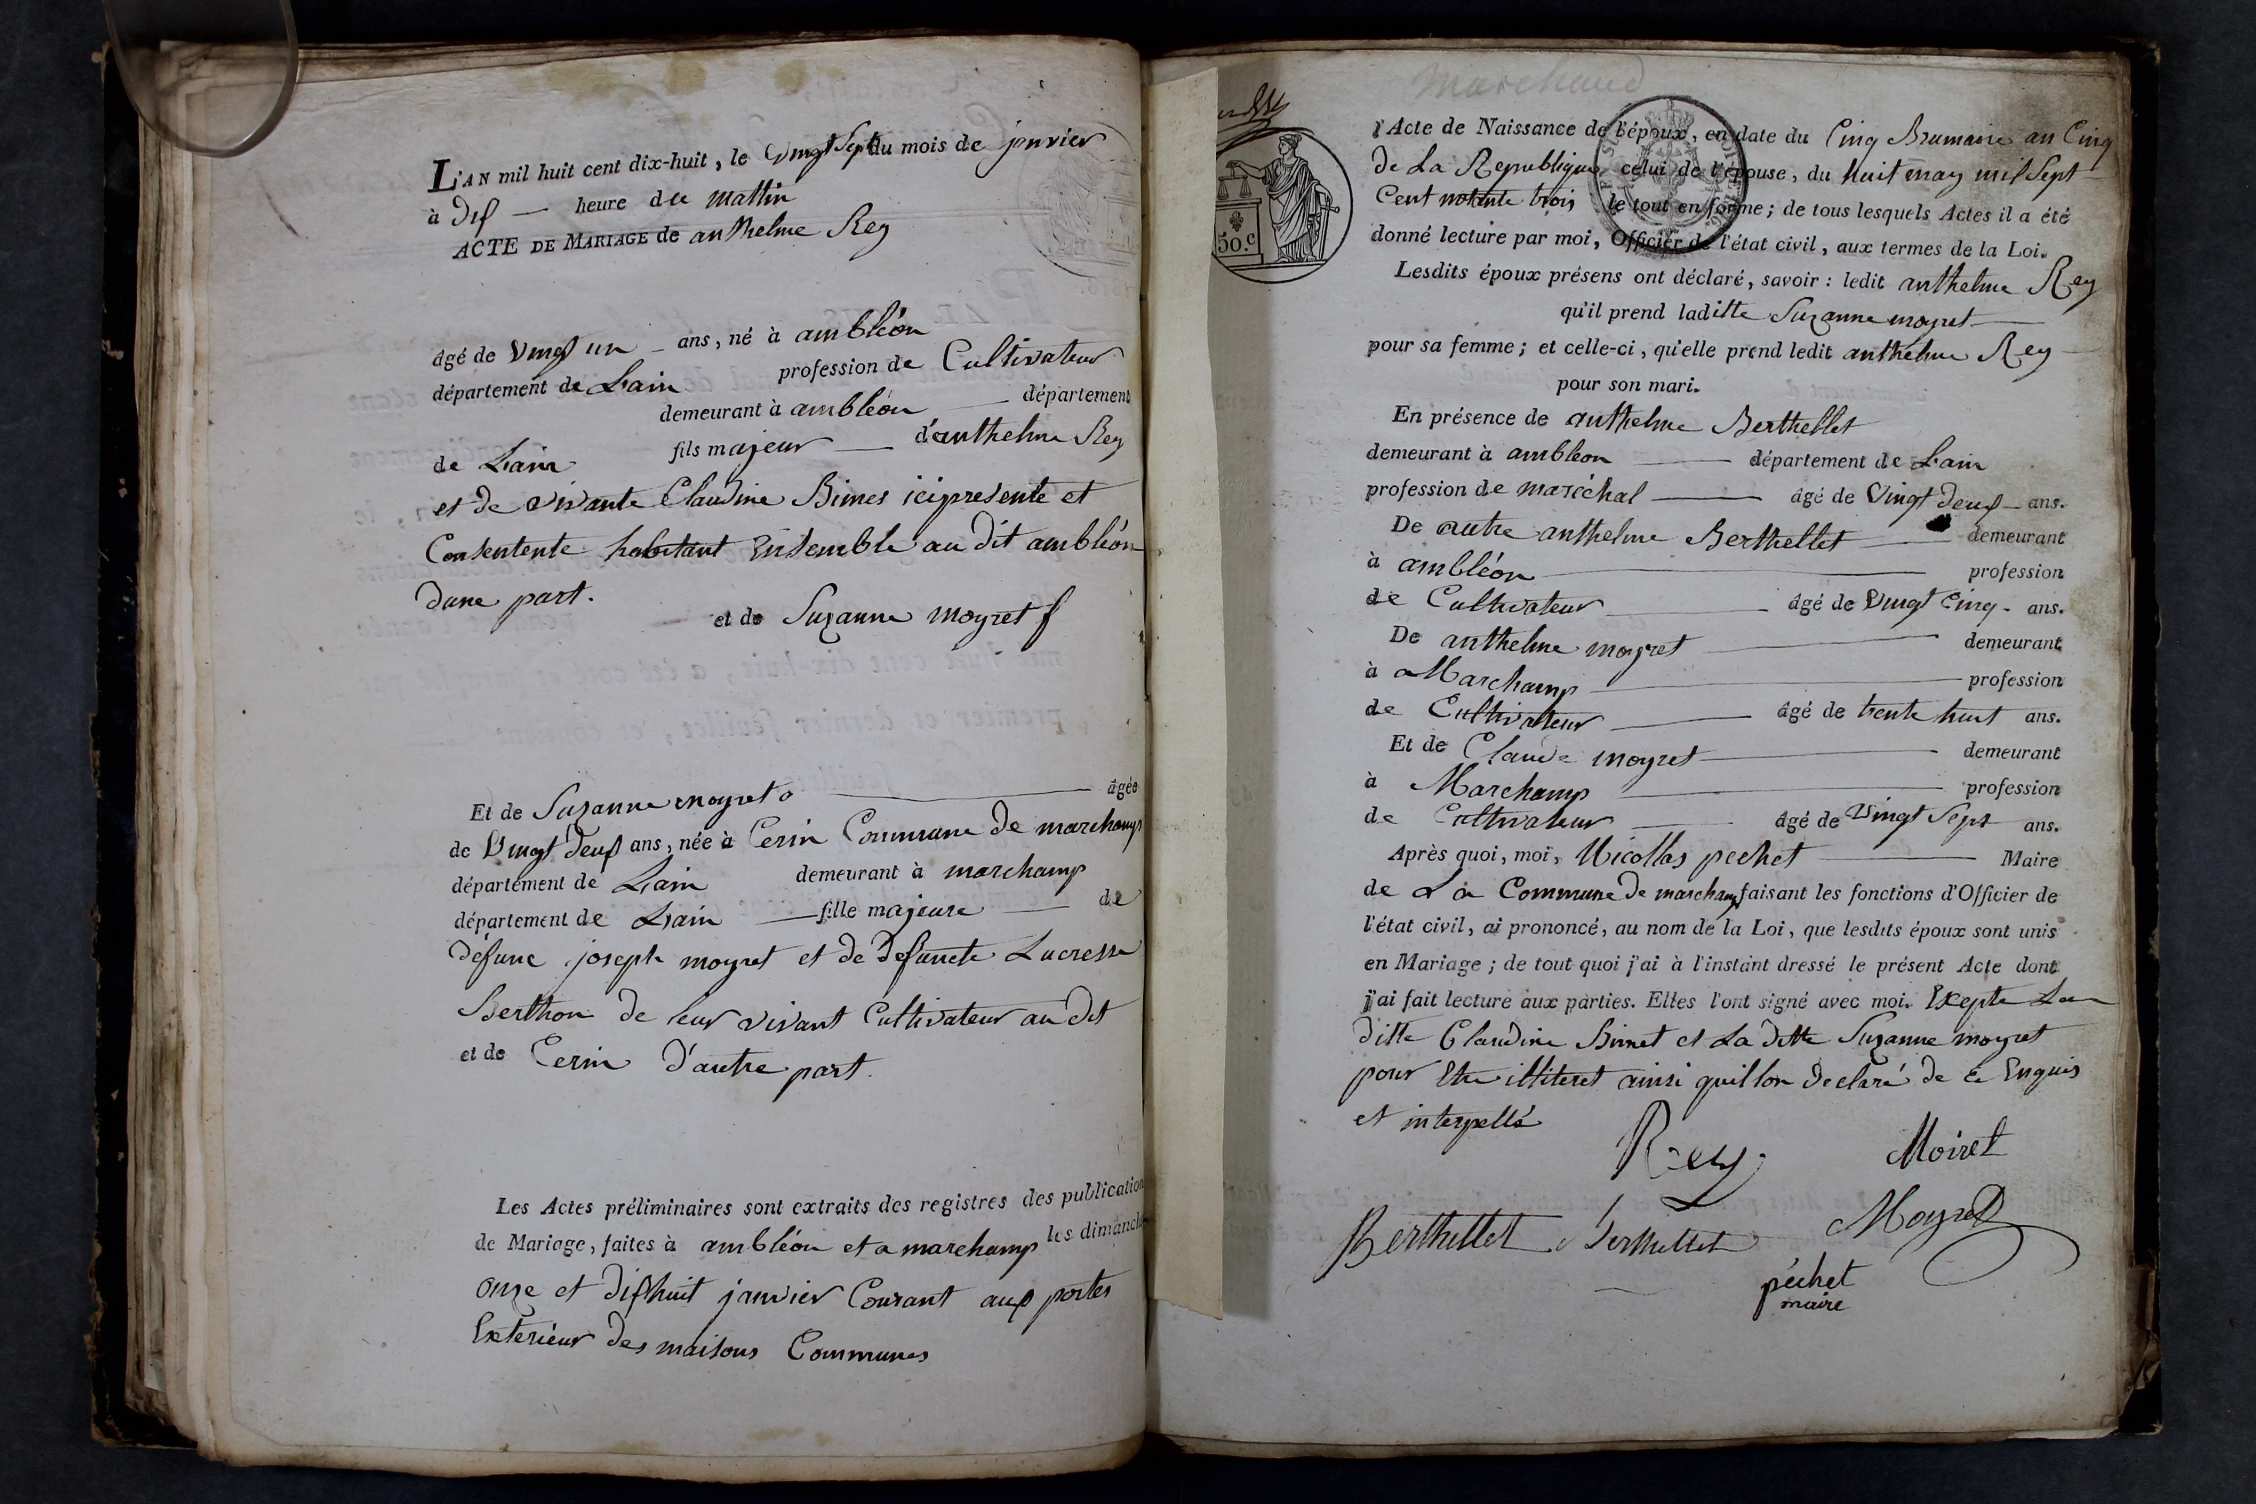 L'AN mil huit cent dix-huit, le vingt Sept du mois de janvier
à Dix — heure du mattin
ACTE DE MARIAGE de anthelme Rey
âgé de vingt un — ans, né à ambléon
département de Lain profession de Cultivateur
demeurant à ambléon — département
de Lain fils majeur — d'anthelme Rey
et de vivante Claudine Bimes ici presente et
Consentente habitant Ensemble au dit ambléon
dune part.
et de Suzanne moyret
Et de Suzanne moyret — âgée
de Vingt deux ans, née à Cerin Commune de marchamp
département de Lain demeurant à marchamp
département de Lain — fille majeure — de
défunc joseph moyret et de défuncte Lucresse
Berthon de leur vivant Cultivateur au dit
et de Cerin d'autre part.
Les Actes préliminaires sont extraits des registres des publication
de Mariage, faites à ambléon et a marchamp les dimanch
onze et dixhuit janvier Courant aux portes
Exterieur des maisons Communes
Marchand
l'Acte de Naissance de l'époux, en date du Cinq Brumaire an Cinq
de La Republique celui de l'épouse, du huit may mil Sept
Cent trois le tout en forme; de tous lesquels Actes il a été
donné lecture par moi, Officier de l'état civil, aux termes de la Loi.
50.c
Lesdits époux présens ont déclaré, savoir: ledit anthelme Rey
qu'il prend laditte Suzanne moyret —
pour sa femme; et celle-ci, qu'elle prend ledit anthelme Rey —
pour son mari.
En présence de anthelme Berthellet
demeurant à ambleon — département de Lain
profession de maréchal — âgé de Vingt deux — ans.
De autre anthelme Berthellet — demeurant
à ambléon — profession
de Cultivateur — âgé de Vingt Cinq - ans.
De anthelme moyret — demeurant
à Marchamp — profession
de Cultivateur — âgé de trente huit ans.
Et de Claude moyret — demeurant
à Marchamp — profession
de Cultivateur — âgé de Vingt Sept ans.
Après quoi, moi, Nicollas pechet — Maire
de La Commune de marchamp faisant les fonctions d'Officier de
l'état civil, ai prononcé, au nom de la Loi, que lesdits époux sont unis
en Mariage; de tout quoi j'ai à l'instant dressé le présent Acte dont
j'ai fait lecture aux parties. Elles l'ont signé avec moi. Excepte La
ditte Claudine Bimet et La ditte Suzanne moyret
pour Etre illiteret ainsi quil lon declaré de ce Enquis
et interpellé
Rey Moiret
Berthellet Berthellet Moyret
péchet
maire